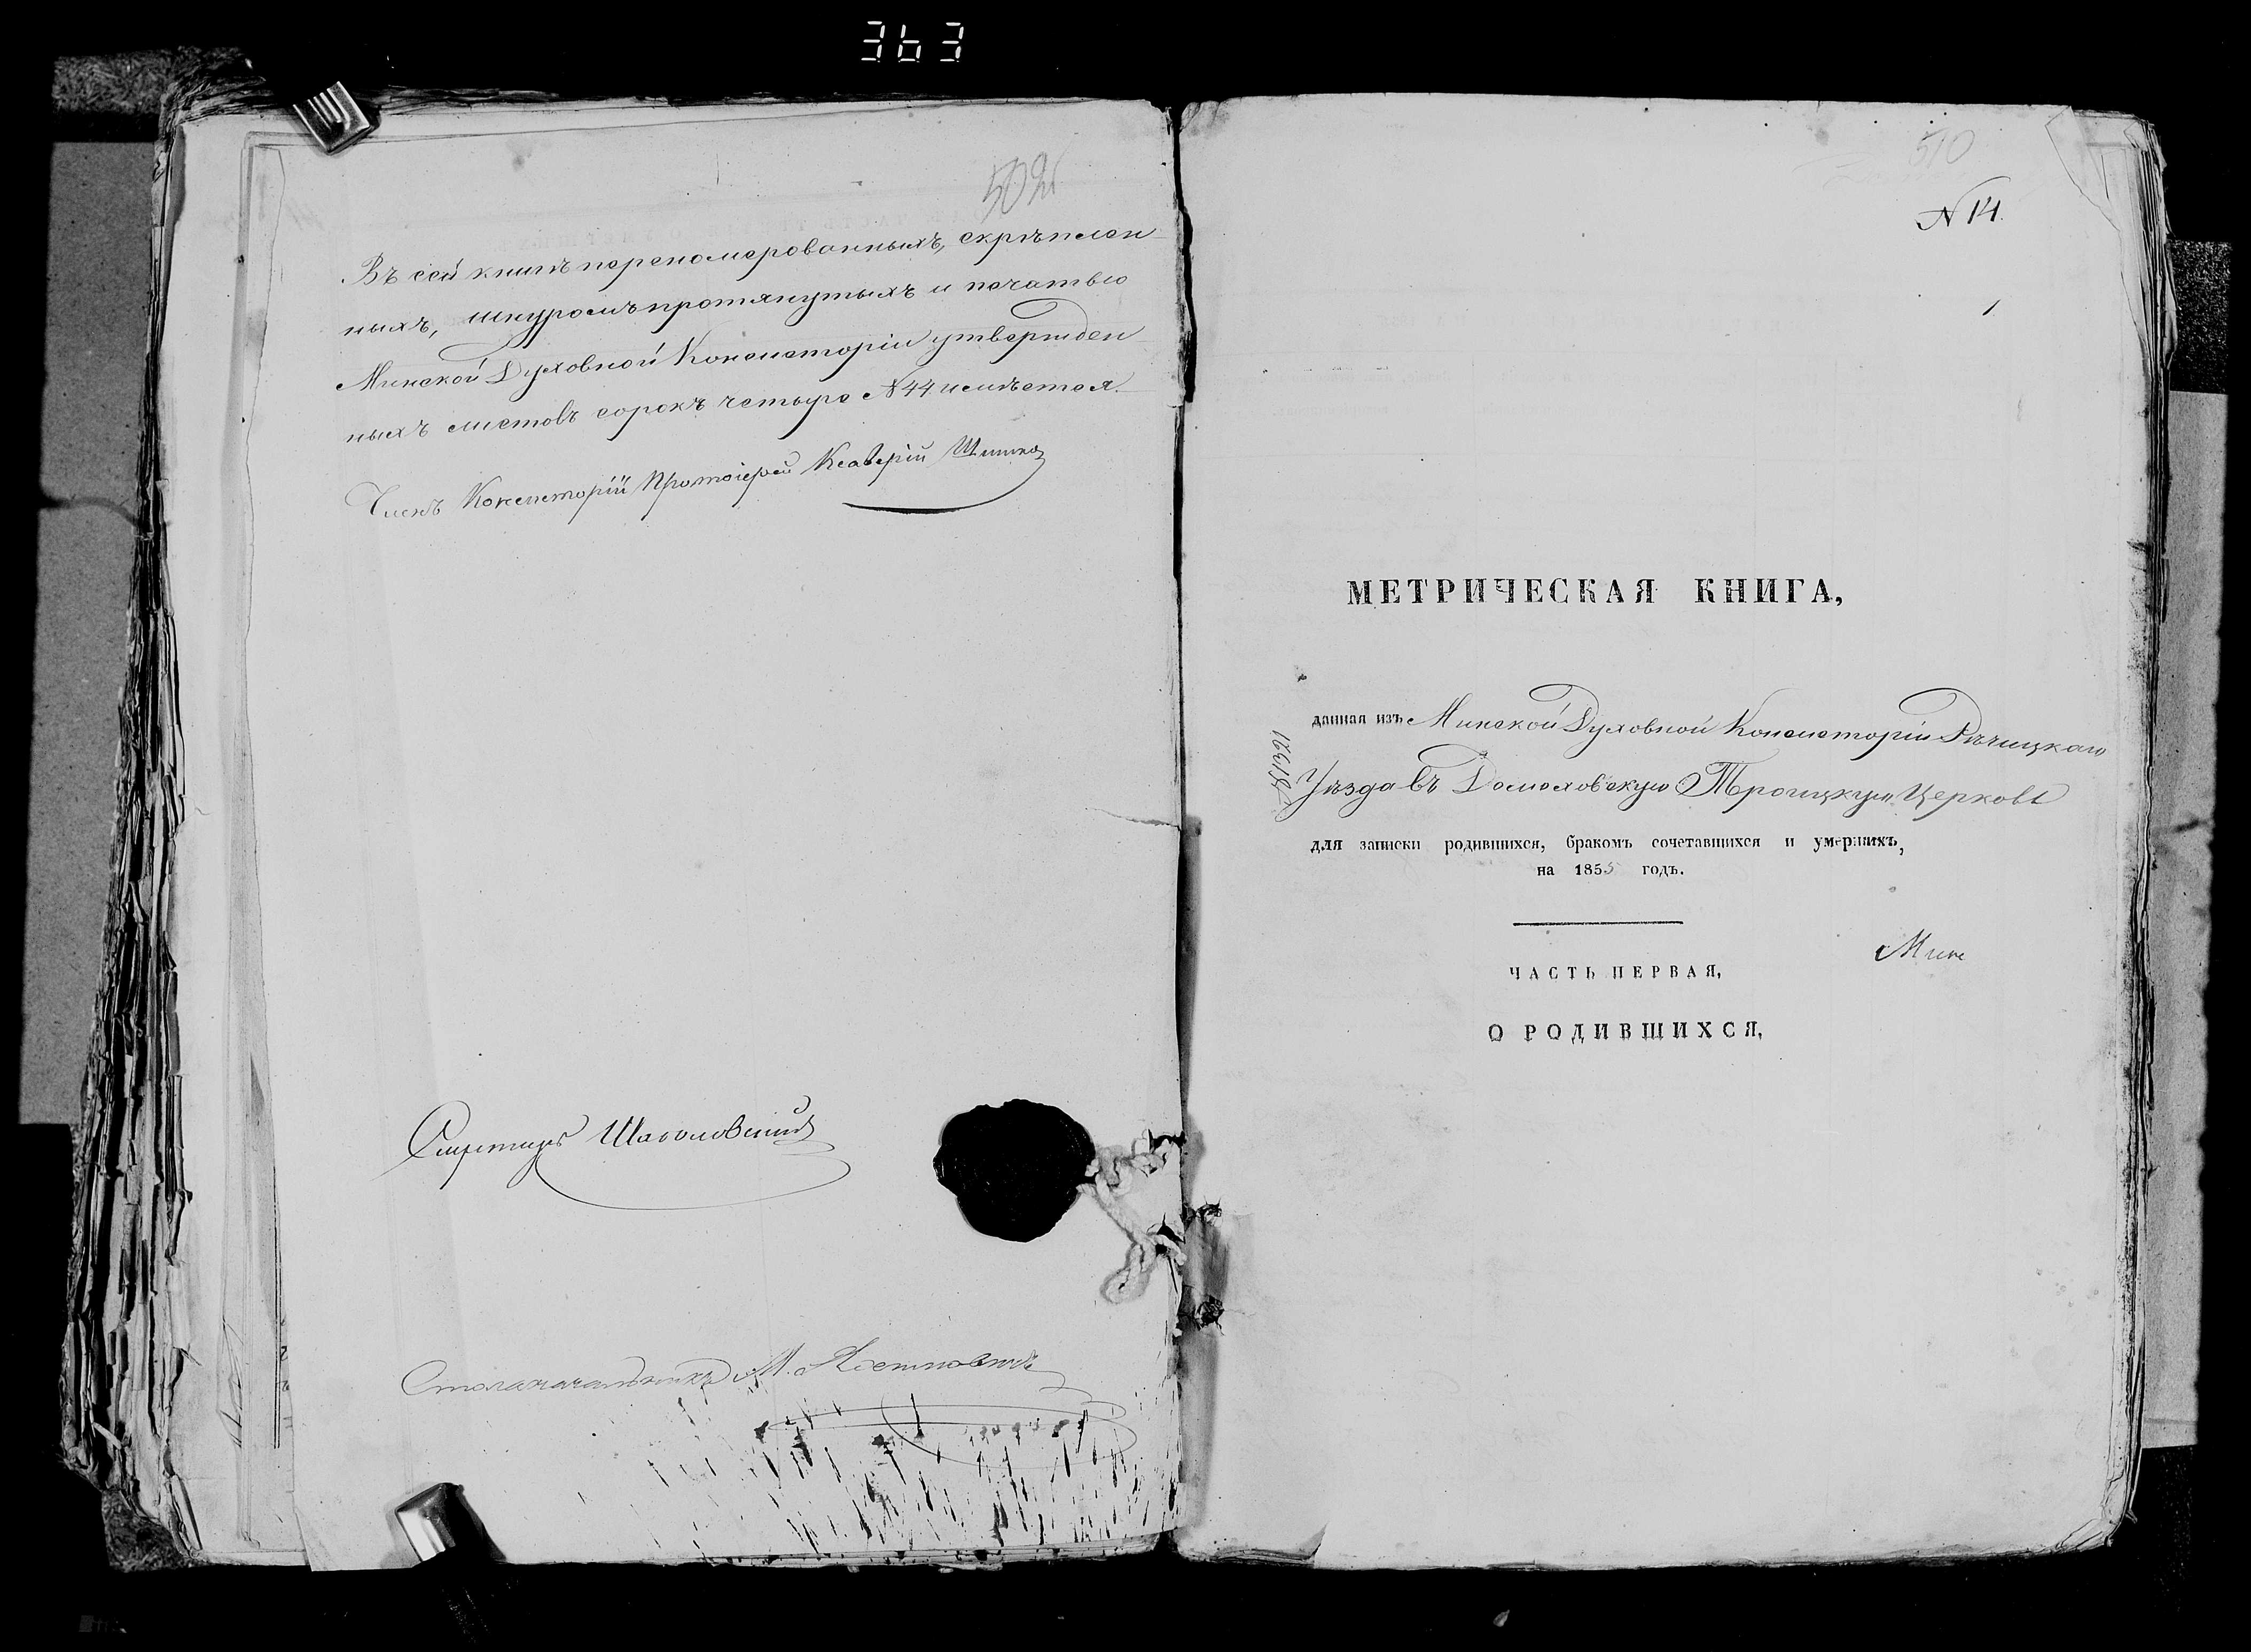 363
509
Въ сей книгѣ переномерованныхъ, скрѣплен
ныхъ, шнуромъ протянутыхъ и печатью
Минской Духовной Консисторіи утвержден
ныхъ листовъ сорокъ четыре №44 имѣется.
Членъ Консисторіи Протоіерей Ксаверій
Секретарь
Столоначальникъ М.
510
№ 14.
1
МЕТРИЧЕСКАЯ КНИГА,
данная изъ Минской Духовной Консисторіи Рѣчицкаго
Уѣзда въ Домоховскую Троицкую Церковь
для записки родившихся, бракомъ сочетавшихся и умершихъ,
на 1855 годъ.
ЧАСТЬ ПЕРВАЯ,
Мин
О РОДИВШИХСЯ,